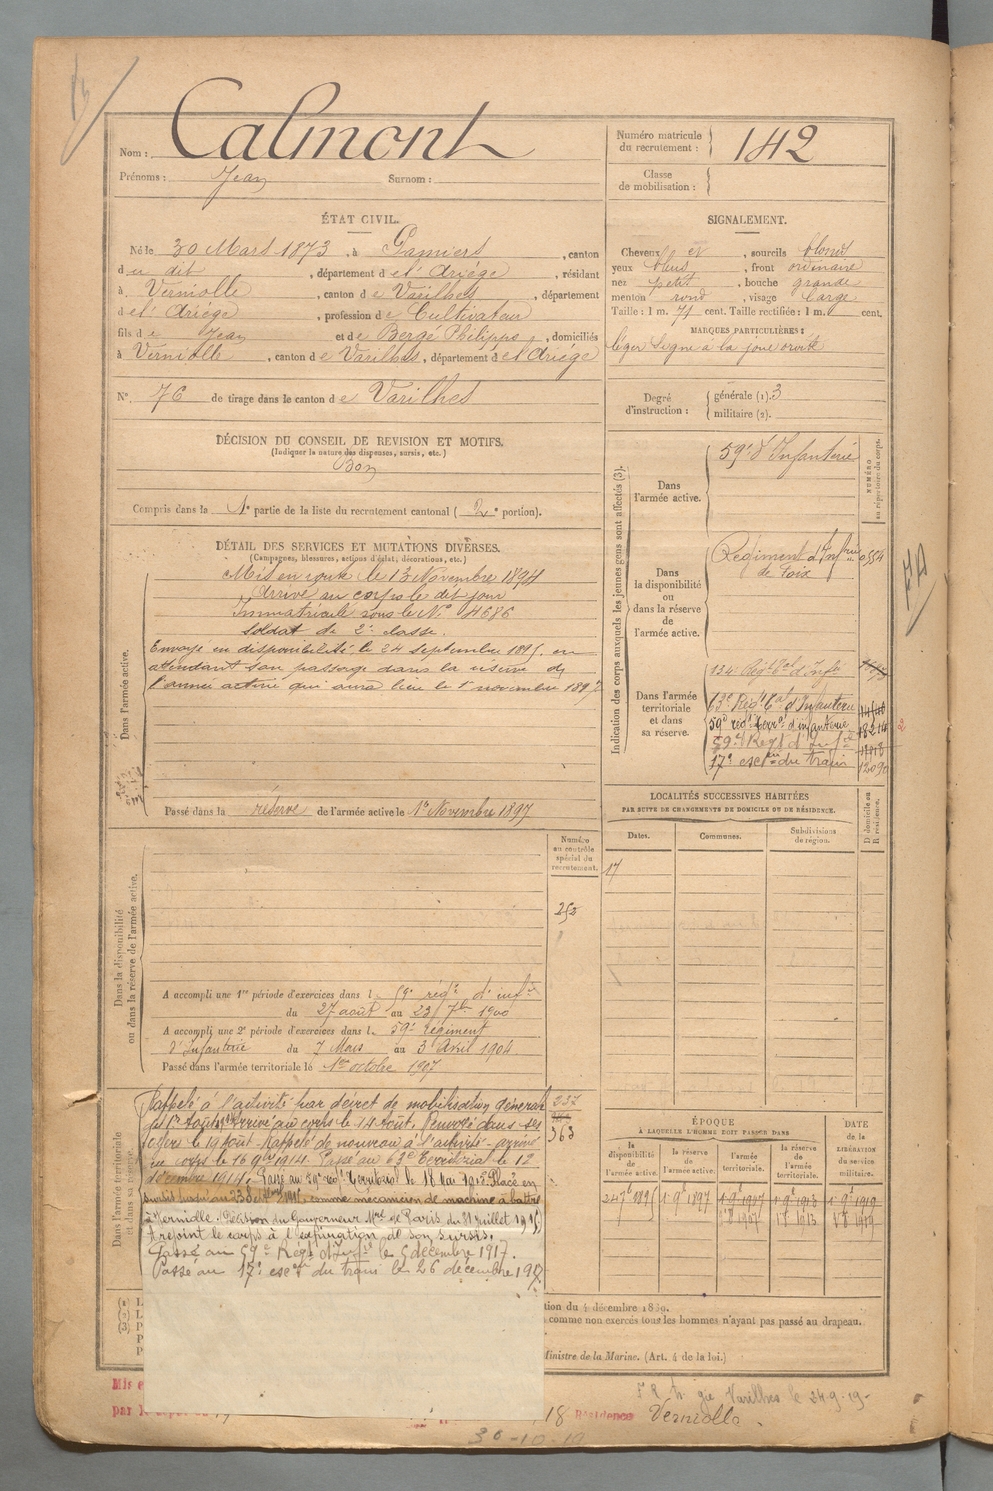 Nom : Calmont
Prénoms : Jean Surnom :
Numéro matricule du recrutement : 142
Classe de mobilisation :
ÉTAT CIVIL.
Né le 30 Mars 1873, à Pamiers, canton
du dit, département de l'Ariége, résidant
à Verniolle, canton de Varilhes, département
de l'Ariége, profession de Cultivateur
fils de Jean et de Bergé Philippe, domiciliés
à Verniolle, canton de Varilhes, département de l'Ariége
N° 76 de tirage dans le canton de Varilhes
SIGNALEMENT.
Cheveux et, sourcils blond
yeux bleus, front ordinaire
nez petit, bouche grande
menton rond, visage large
Taille : 1 m. 71 cent. Taille rectifiée : 1 m. cent.
MARQUES PARTICULIÈRES :
léger signe à la joue droite
Degré d'instruction : générale (1). 3
militaire (2).
DÉCISION DU CONSEIL DE REVISION ET MOTIFS.
(Indiquer la nature des dispenses, sursis, etc.)
Bon
Compris dans la 1e partie de la liste du recrutement cantonal ( 2e portion).
DÉTAIL DES SERVICES ET MUTATIONS DIVERSES.
(Campagnes, blessures, actions d'éclat, décorations, etc.)
Dans l'armée active.
Mis en route le 13 Novembre 1894
Arrivé au corps le dit jour
Immatriculé sous le N° 4686
Soldat de 2e classe.
Envoyé en disponibilité le 24 septembre 1895, en
attendant son passage dans la réserve de
l'armée active qui aura lieu le 1er novembre 1897
Passé dans la réserve de l'armée active le 1er Novembre 1897
Dans la disponibilité
ou dans la réserve de l'armée active.
Numéro
au contrôle
spécial du
recrutement.
252
A accompli une 1re période d'exercices dans l 59e régt d'infie
du 27 août au 23 7bre 1900
A accompli une 2e période d'exercices dans l. 59e Régiment
d'Infanterie du 7 Mars au 3 Avril 1904
Passé dans l'armée territoriale le 1er octobre 1907
Dans l'armée territoriale
et dans sa réserve.
Rappelé à l'activité par décret de mobilisation générale
du 1er Août 1914 Arrivé au corps le 14 août. Renvoyé dans ses
foyers le 19 août. Rappelé de nouveau à l'activité - arrivé
au corps le 16 9bre 1914. Passé au 63e Territorial le 12
décembre 1914. Passé au 59e régt territorial le 18 Mai 1915. Placé en
sursis jusqu'au 23 1915, comme mécanicien de machine à battre
à Verniolle. Décision du Gouverneur Mre de Paris du 31 juillet 1915
A rejoint le corps à l'expiration de son sursis.
Passé au 59e Régt d'Infie le 5 décembre 1917.
Passé au 17e escon du train le 26 décembre 1917
237
363
Indication des corps auxquels les jeunes gens sont affectés (3).
NUMÉRO
au répertoire du corps.
Dans
l'armée active.
59e d'Infanterie
Dans
la disponibilité
ou
dans la réserve
de
l'armée active.
Régiment d'Infie
de Foix
0554
Dans l'armée
territoriale
et dans
sa réserve.
134e Régt tal d'Infie
63e Régt tal d'Infanterie
59e régt terral d'infanterie 18214
59e Régt d'Infie
17e escon du train 12090
2
LOCALITÉS SUCCESSIVES HABITÉES
PAR SUITE DE CHANGEMENTS DE DOMICILE OU DE RÉSIDENCE.
D domicile ou
R résidence.
Dates. Communes. Subdivisions
de région.
17
ÉPOQUE
À LAQUELLE L'HOMME DOIT PASSER DANS
DATE
de la
LIBÉRATION
du service
militaire.
la
disponibilité
de
l'armée active.
la réserve
de
l'armée active.
l'armée
territoriale.
la réserve
de
l'armée
territoriale.
24 7e 1895 1 9e 1897 1 9e 1907 1 9e 1913 1 9e 1919
1 8 1907 1 8 1913 1 8 1919
(1) L
(2) L
(3) P
P
P
tion du 4 décembre 1889.
comme non exercés tous les hommes n'ayant pas passé au drapeau.
Ministre de la Marine. (Art. 4 de la loi.)
Mis e
par l
F R gie Varilhes le 24-9-19-
18 Résidence Verniolle.
30-10-19